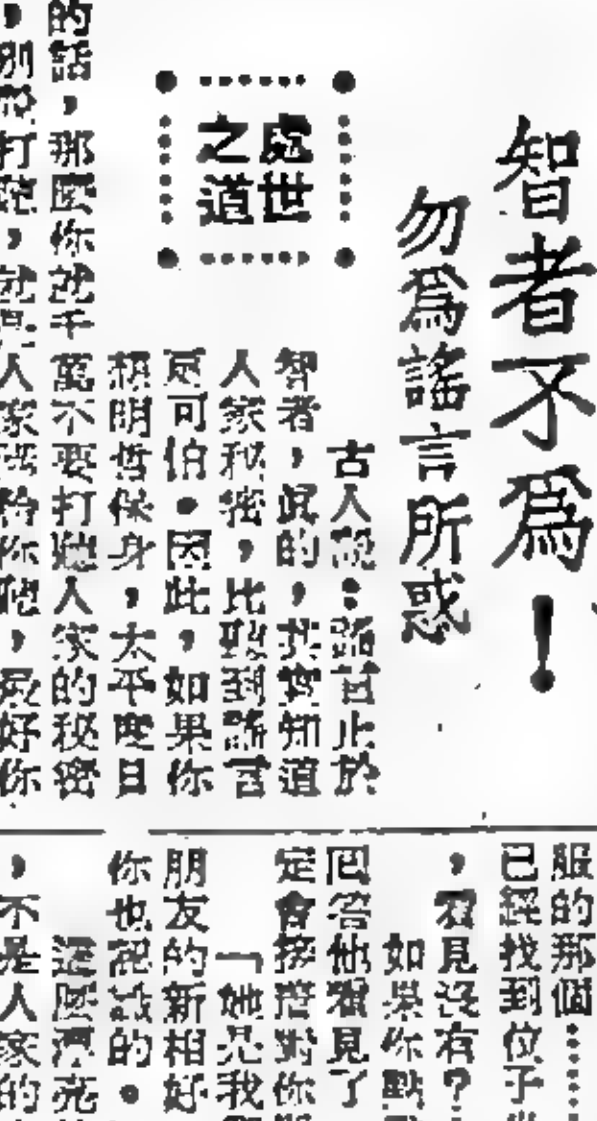 智者不爲！
勿爲謠言所惑
處世
之道
古人說：謠言止於
智者，眞的，其實知道
人家秘密，比聽到謠言
更可怕。因此，如果你
想明哲保身，太平度日
的話，那麼你就千萬不要打聽人家的秘密
，別說打聽，就是人家
你，最好你
服的那個⋯⋯
已經找到位子
，看見沒有？
如果你點
回答他看見了
定會接着對你
「她是我
朋友的新相好
你也認識的。
這麼漂亮
，不是人家的